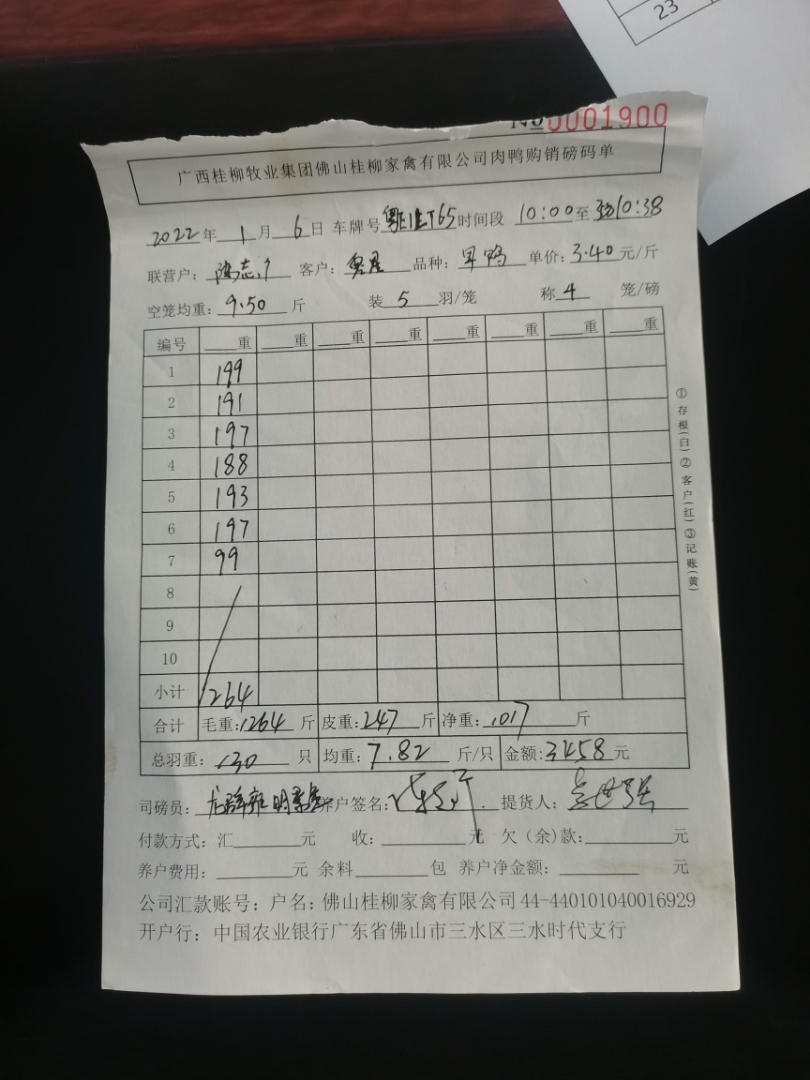 23
№0001900
广西桂柳牧业集团佛山桂柳家禽有限公司肉鸭购销磅码单
2022年 1 月 6 日 车牌号 时间段 10:00至 10:38
联营户: 客户: 品种: 单价:3.40元/斤
空笼均重: 9.50 斤 装 5 羽/笼 称 4 笼/磅
编号 重 重 重 重 重 重 重 重
1 199
2 191
3 197
4 188
5 193
6 197
7 99
8
9
10
小计 1264
合计 毛重:1264 斤 皮重:247 斤 净重:1017 斤
总羽重: 130 只 均重:7.82 斤/只 金额:3458元
司磅员: 养户签名: 提货人:
付款方式:汇 元 收: 元 欠(余)款: 元
养户费用: 元 余料 包 养户净金额: 元
公司汇款账号:户名:佛山桂柳家禽有限公司44-440101040016929
开户行:中国农业银行广东省佛山市三水区三水时代支行
①存根(白)②客户(红)③记账(黄)